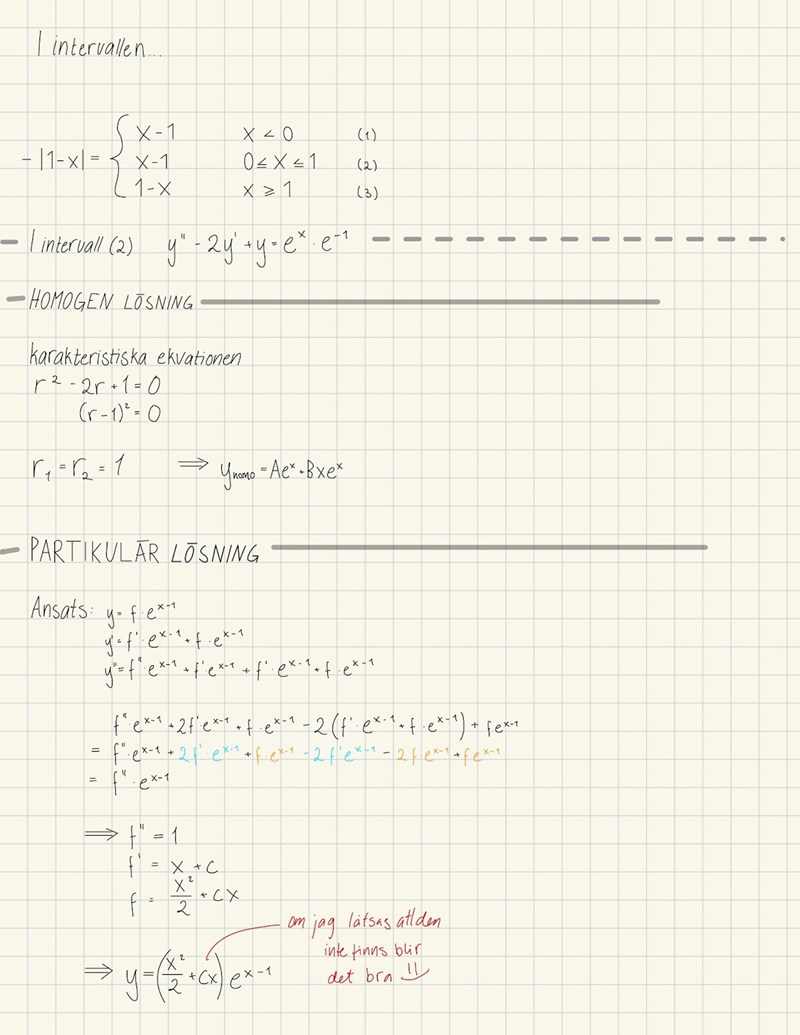 I intervallen...
-|1-x| = { x-1 x < 0 (1)
x-1 0 ≤ x ≤ 1 (2)
1-x x ≥ 1 (3)
I intervall (2) y'' - 2y' + y = e^x · e^-1
HOMOGEN LÖSNING
karakteristiska ekvationen
r² - 2r + 1 = 0
(r-1)² = 0
r₁ = r₂ = 1 ⟹ y_homo = Ae^x + Bxe^x
PARTIKULÄR LÖSNING
Ansats: y = f · e^x-1
y' = f' · e^x-1 + f · e^x-1
y'' = f'' · e^x-1 + f'e^x-1 + f' · e^x-1 + f · e^x-1
f'' · e^x-1 + 2f'e^x-1 + f · e^x-1 - 2(f' · e^x-1 + f · e^x-1) + fe^x-1
= f'' · e^x-1 + 2f' · e^x-1 + f · e^x-1 - 2f'e^x-1 - 2f e^x-1 + fe^x-1
= f'' · e^x-1
⟹ f'' = 1
f' = x + C
f = x²/2 + Cx
om jag låtsas att den
inte finns blir
det bra
⟹ y = (x²/2 + Cx) e^x-1